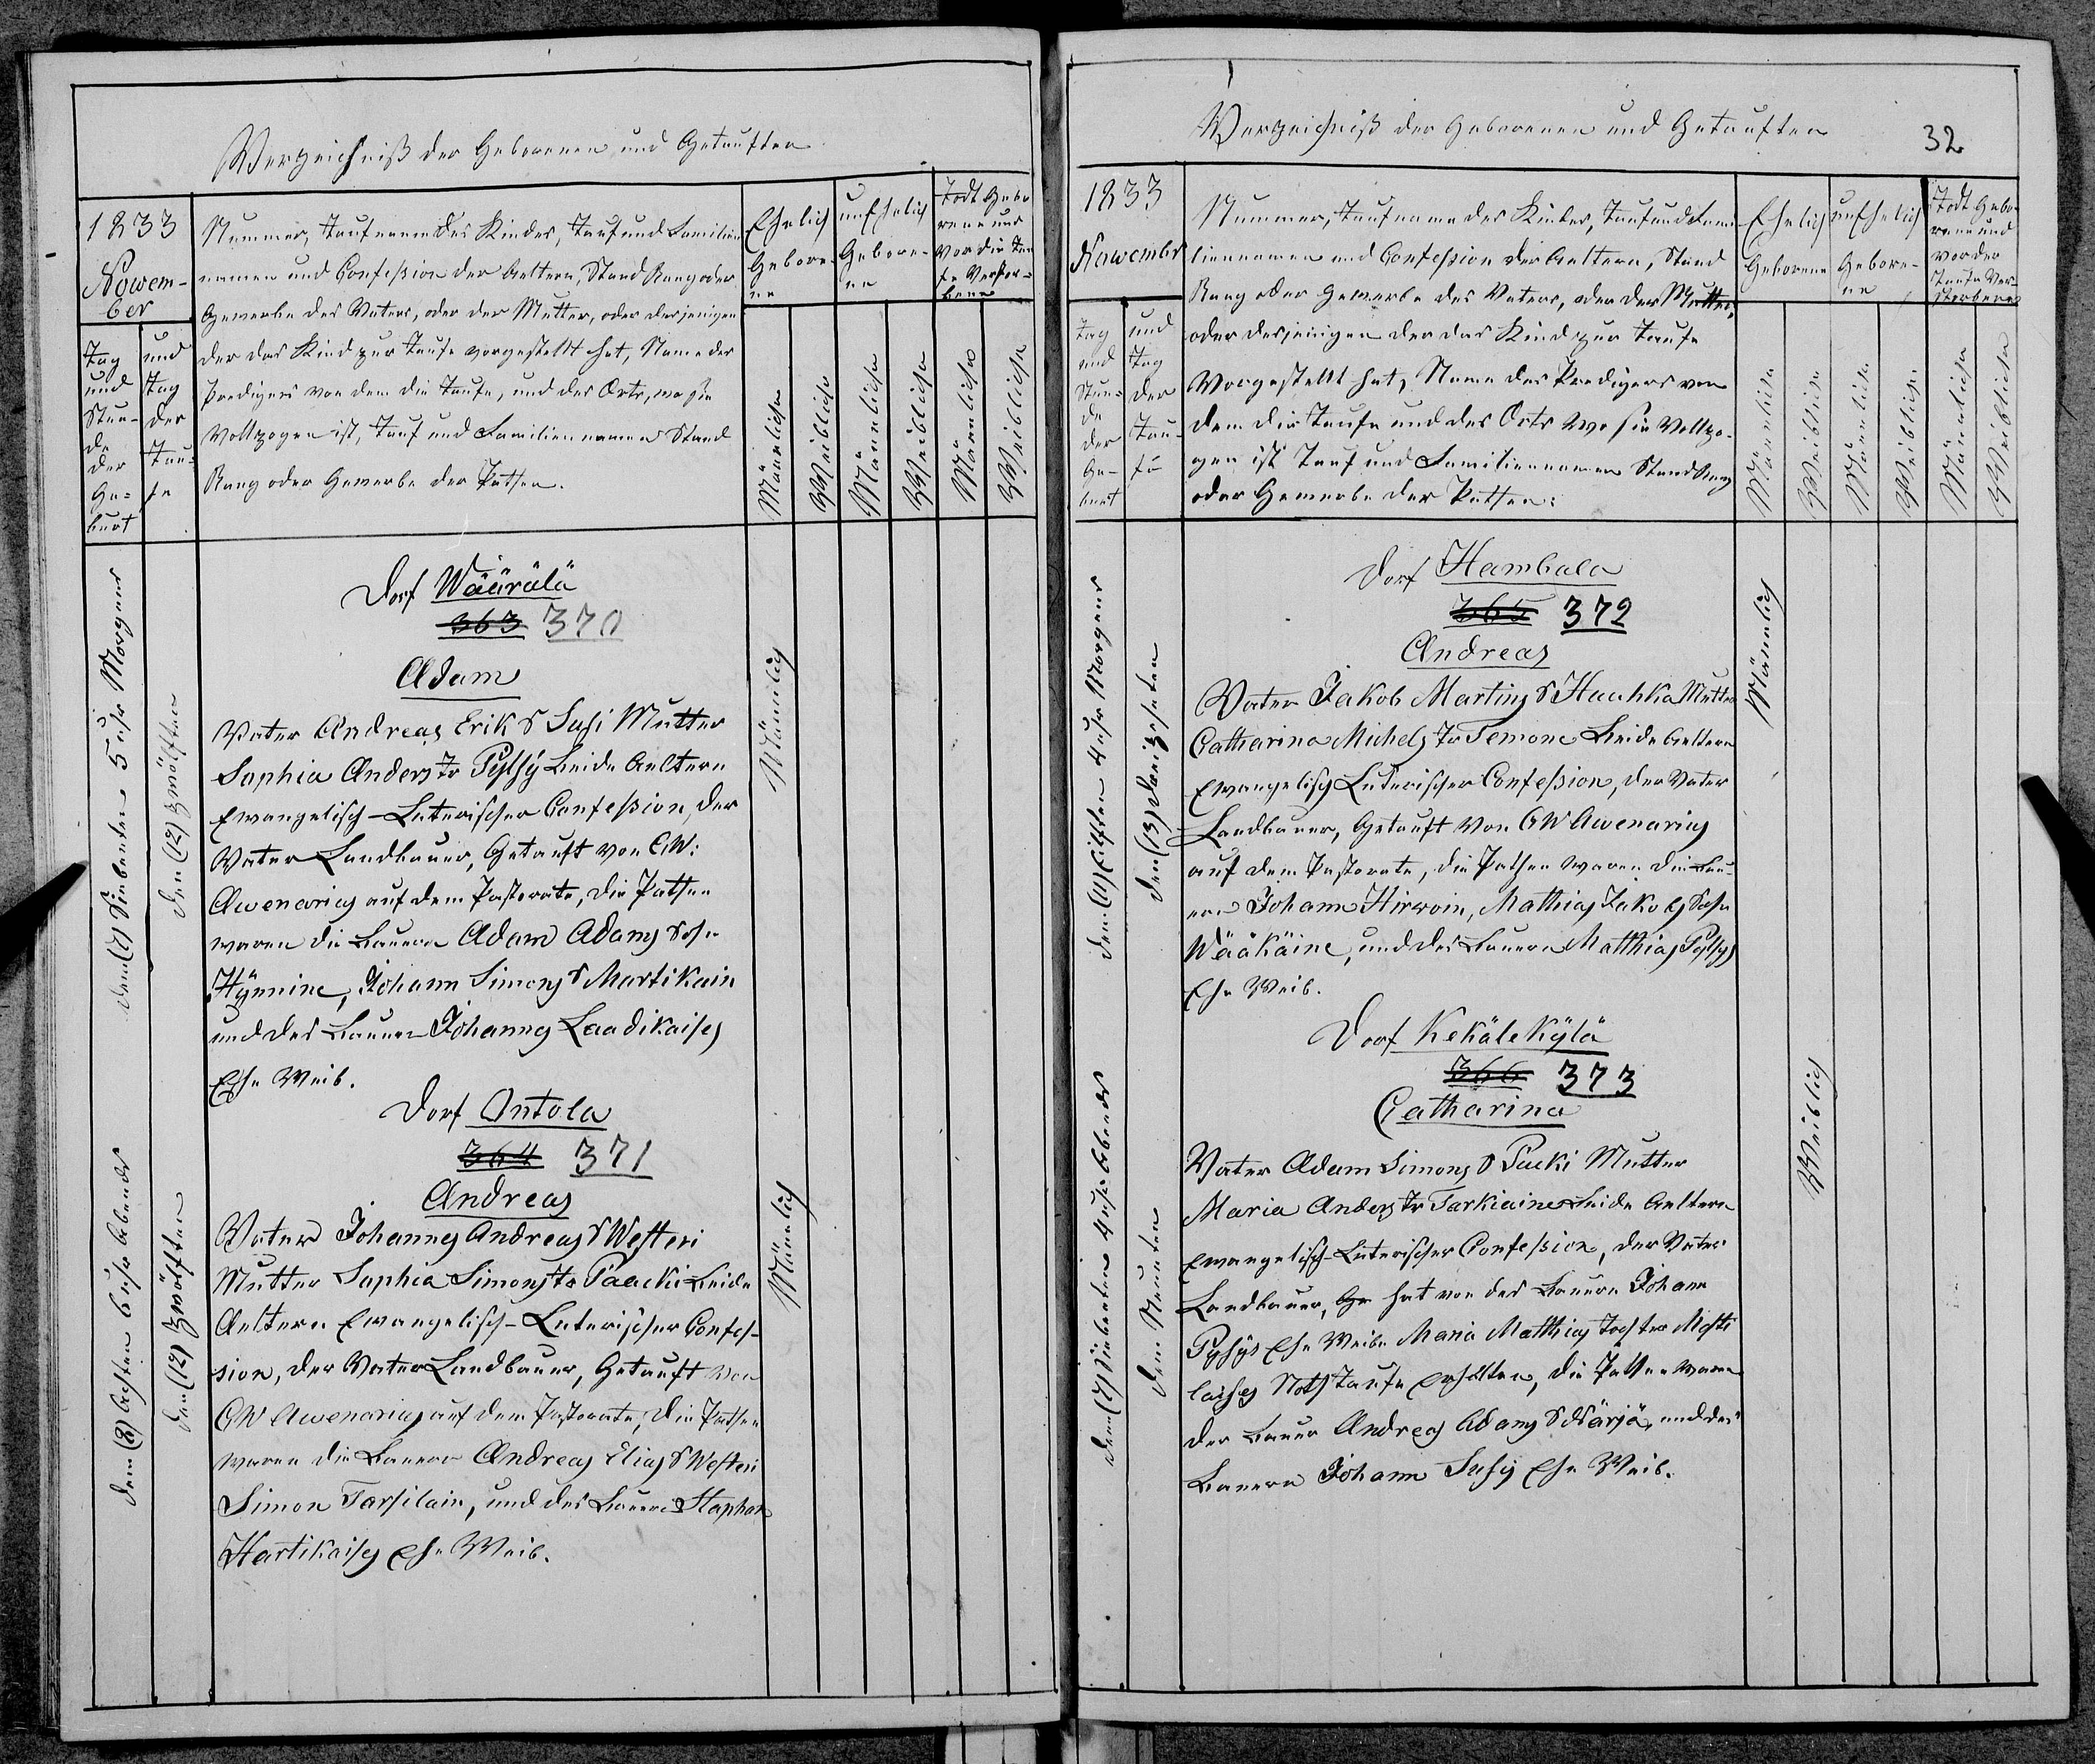 Verzeichniß der Geborenen und Getauften
1833
Nowem-
ber
Tag
und
Stun-
de
der
Ge-
burt
und
Tag
der
Tau-
fe
Nummer, Taufname des Kindes, Tauf und Familien
namen und Confession der Aeltern, Stand Rang oder
Gewerbe des Vaters, oder der Mutter, oder desjenigen
der das Kind zur Taufe vorgestellt hat, Name des
Predigers von dem die Taufe, und des Orts, wo sie
Vollzogen ist, Tauf und Familien namen Stand
Rang oder Gewerbe der Pathen.
Ehelich
Gebore-
ne
unEhelich
Gebore-
ne
Todt Gebo
rene und
vor der Tau
fe Verstor-
bene
Männliche
Weibliche
Männliche
Weibliche
Männliche
Weibliche
den (7) Siebenten 5 uhr Morgens
den (12) Zwölften
Dorf Wäärälä
363 370
Adam
Vater Andreas Erik S Susi Mutter
Sophia Anders Tr Pylsÿ beide Aeltern
Ewangelisch-Luterischer Confession, der
Vater Landbauer, Getauft von CW:
Awenarius auf dem Pastorate, die Pathen
waren die Bauern Adam Adams Sohn
Hÿnnine, Johann Simons S Martikain
und des Bauern Johanns Laadikaises
Ehe Weib.
Männlich
den (8) Achten 6 uhr Abends
den (12) Zwölften
Dorf Ontola
364 371
Andreas
Vater Johannes Andreas S Westeri
Mutter Sophia Simons Tr Paacki beide
Aeltern Ewangelisch-Luterischer Confes-
sion, der Vater Landbauer, Getauft von
CW Awenarius auf dem Pastorate, die Pathen
waren die Bauern Andreas Elias S Westeri
Simon Tarsilain, und des Bauern Staphan
Hartikaises Ehe Weib.
Männlich
Verzeichniß der Geborenen und Getauften
32
1833
Nowembr
Tag
und
Stun-
de
der
Ge-
burt
und
Tag
der
Tau-
fe
Nummer, Taufname des Kindes, Tauf und Fami
liennamen und Confession der Aeltern, Stand
Rang oder Gewerbe des Vaters, oder der Mutter,
oder desjenigen der das Kind zur Taufe
Vorgestellt hat, Name des Predigers von
dem die Taufe und des Orts wo sie Vollzo-
gen ist Tauf und Familiennamen Stand Rang
oder Gewerbe der Pathen:
Ehelich
Geborene
unEhelich
Gebore-
ne
Todt Gebo-
rene und
vor der
Taufe Ver-
storbene
Männliche
Weibliche
Männliche
Weibliche
Männliche
Weibliche
den (11) Eilften 4 uhr Morgens
den (13) Dreizehnten
Dorf Hambala
365 372
Andreas
Vater Jakob Martins S Hauhka Mutter
Catharina Michels Tr Temone beide Aeltern
Ewangelisch Luterischer Confession, der Vater
Landbauer, Getauft von CW Awenarius
auf dem Pastorate, die Pathen waren die Bau-
ern Johann Hirwoin, Mathias Jakobs Sohn
Wääkäine, und des Bauern Matthias Pylsys
Ehe Weib.
Männlich
den (7) Siebenten 4 uhr Abends
den Neunten
Dorf Kekälekÿlä
366 373
Catharina
Vater Adam Simons S Packi Mutter
Maria Anders Tr Tarkiaine beide Aeltern
Ewangelisch-Luterischer Confession, der Vater
Landbauer, Ge hat von des Bauern Johann
Pysÿs Ehe Weibe Maria Matthias Tochter Meste
laises Noth Taufe Erhalten, die Pathen waren
der Bauer Andreas Adams S Härjä, und des
Bauern Johann Susÿ Ehe Weib.
Weiblich